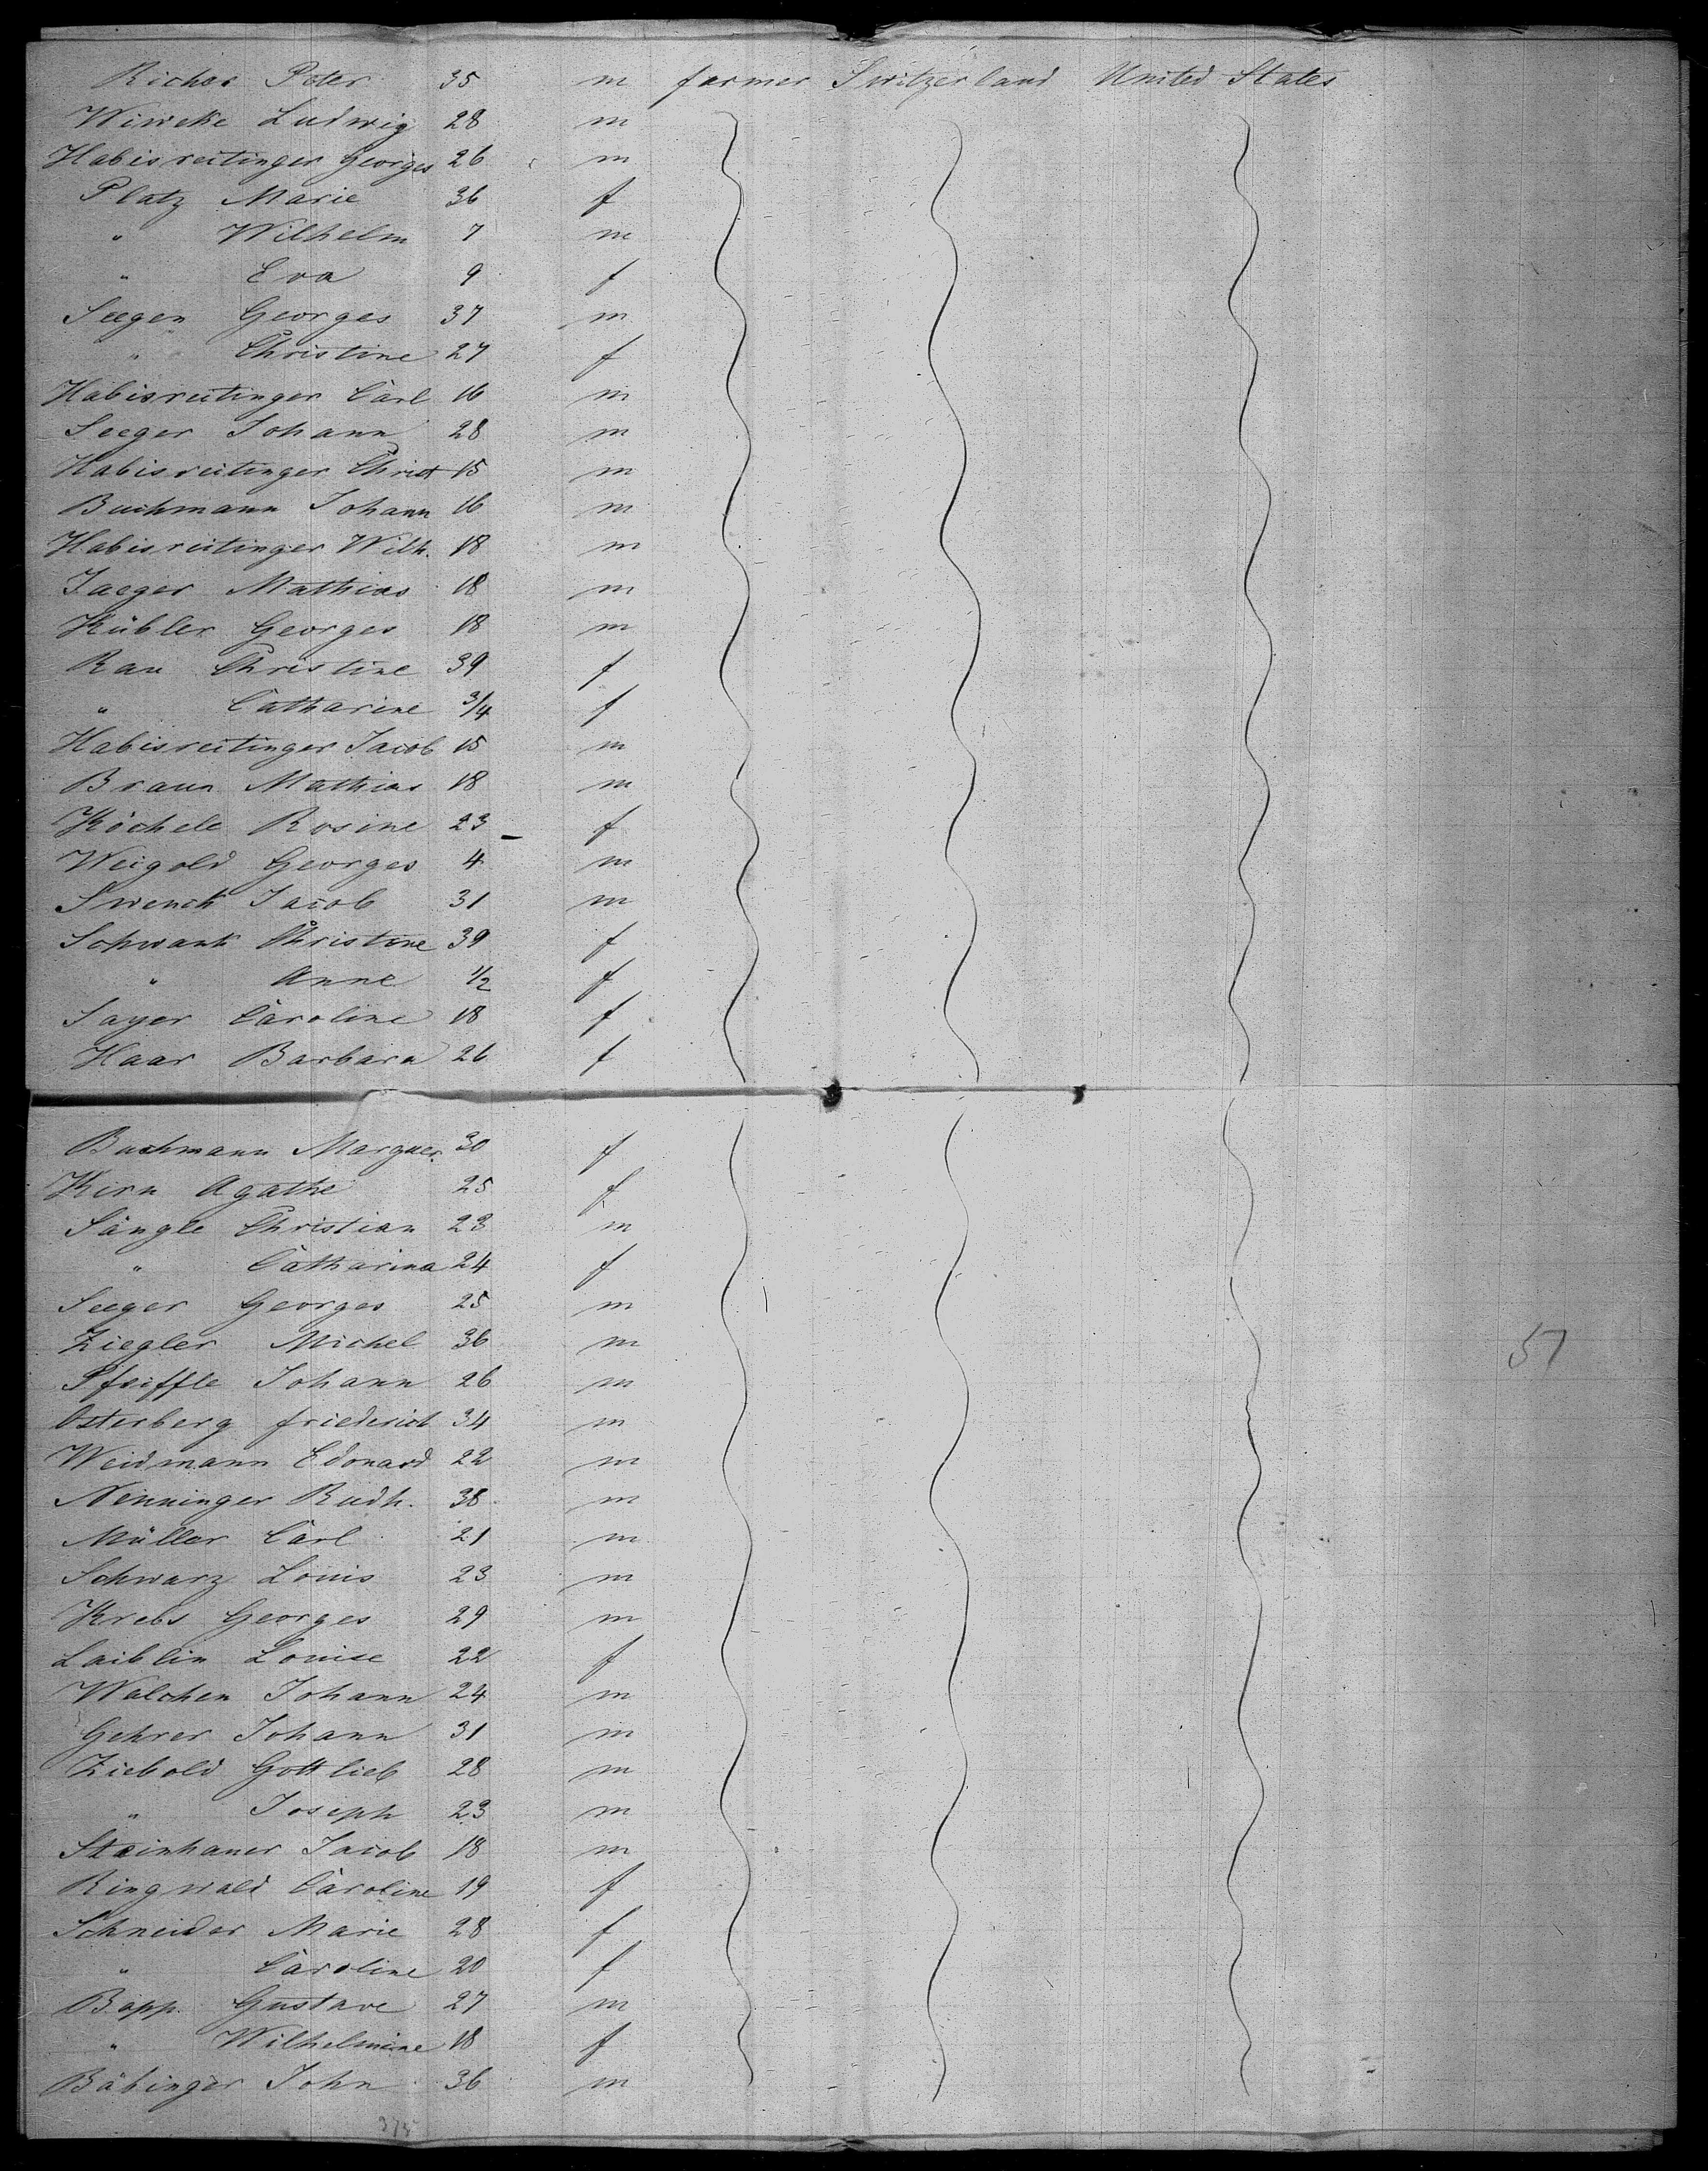 Richos Peter 35 m farmer Switzerland United States
Wiweke Ludwig 28 m
Habisreitinger Georges 26 m
Platz Marie 36 f
" Wilhelm 7 m
" Eva 9 f
Seegen Georges 37 m
" Christine 27 f
Habisreitinger Carl 16 m
Seeger Johann 28 m
Habisreitinger Christ 15 m
Buchmann Johann 16 m
Habisreitinger Wilh. 18 m
Jaeger Mathias 18 m
Kübler Georges 18 m
Rau Christine 39 f
" Catharine 3/4 f
Habisreitinger Jacob 15 m
Braun Mathias 18 m
Köchele Rosine 23 f
Weigold Georges 4 m
Swenck Jacob 31 m
Schwank Christine 39 f
" Anne 1/2 f
Sayer Caroline 18 f
Haar Barbara 26 f
Buchmann Marguer. 30 f
Kirn Agathe 25 f
Sängle Christian 23 m
" Catharina 24 f
Seeger Georges 25 m
Ziegler Michel 36 m
57
Pfeiffle Johann 26 m
Osterberg friederich 34 m
Weidmann Edouard 22 m
Nenninger Rudh. 38 m
Müller Carl 21 m
Schwarz Louis 23 m
Krebs Georges 29 m
Laiblin Louise 22 f
Walchen Johann 24 m
Gehrer Johann 31 m
Ziebold Gottlieb 28 m
" Joseph 23 m
Steinhauer Jacob 18 m
Ringwald Caroline 19 f
Schneider Marie 28 f
" Caroline 20 f
Bopp. Gustave 27 m
" Wilhelmine 18 f
Bäbinger John 36 m